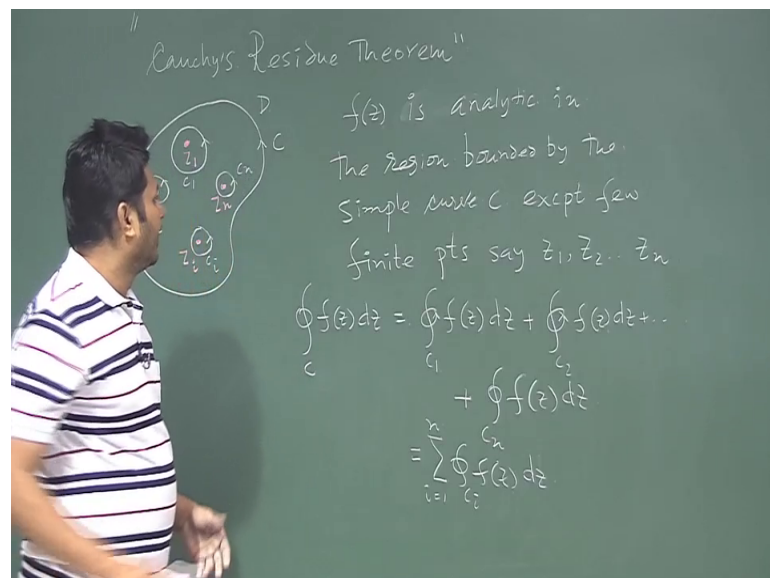 "Cauchy's Residue Theorem"
D
C
z₁
c₁
cₙ
zₙ
zᵢ cᵢ
f(z) is analytic in
the region bounded by the
simple curve C except few
finite pts say z₁, z₂.. zₙ
∮_C f(z)dz = ∮_C₁ f(z)dz + ∮_C₂ f(z)dz + ...
+ ∮_Cₙ f(z)dz
= ∑_{i=1}^{n} ∮_Cᵢ f(z)dz